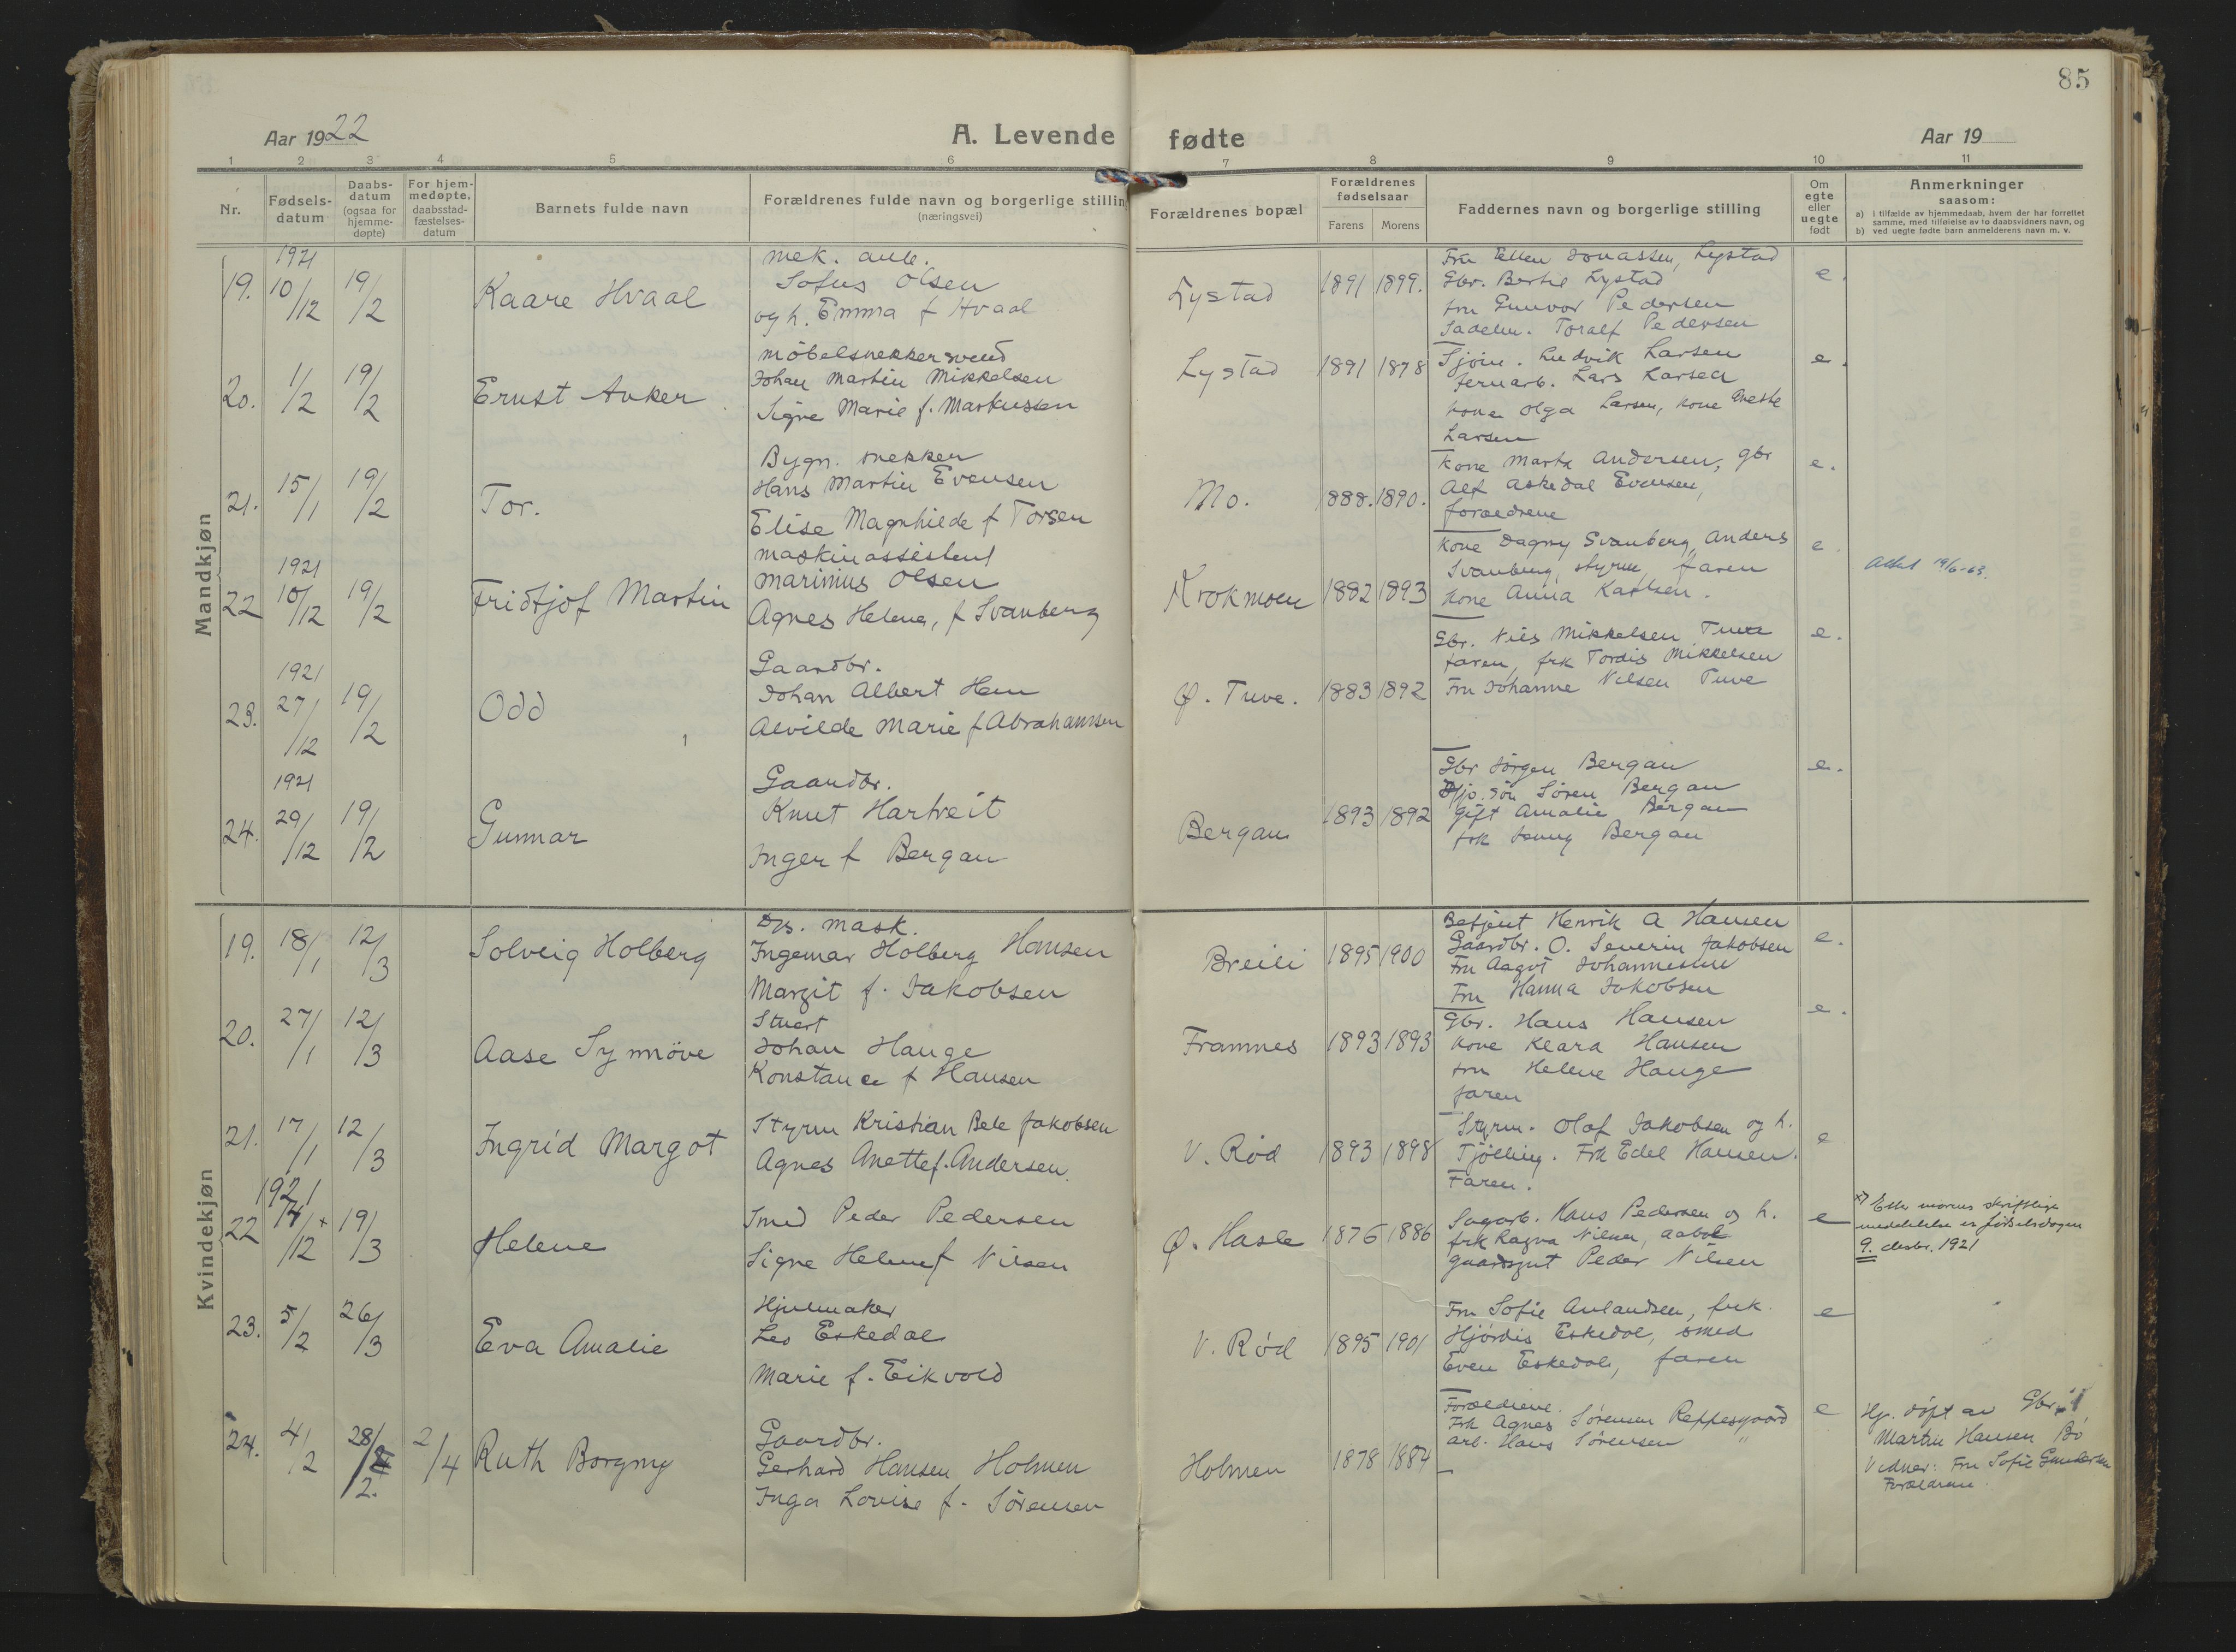 85
Aar 1922
A. Levende fødte
Aar 19
1 2 3 4 5 6 7 8 9 10 11
Nr.
Fødsels-
datum
Daabs-
datum
(ogsaa for
hjemme-
døpte)
For hjem-
medøpte,
daabsstad-
fæstelses-
datum
Barnets fulde navn
Forældrenes fulde navn og borgerlige stilling
(næringsvei)
Forældrenes bopæl
Forældrenes
fødselsaar
Farens Morens
Faddernes navn og borgerlige stilling
Om
egte
eller
uegte
født
Anmerkninger
saasom:
a) i tilfælde av hjemmedaab, hvem der har forrettet
samme, med tilføielse av to daabsvidners navn, og
b) ved uegte fødte barn anmelderens navn m. v.
Mandkjøn
19. 1921 10/12 19/2
Kaare Hvaal
mek. arb.
Sofus Olsen
og h. Emma f Hvaal
Lystad
1891 1899.
Fru Ellen Jonassen, Lystad
Gbr. Bertil Lystad
fru Gunvor Pedersen
Sadelm. Toralf Pedersen
e.
20. 1/2 19/2
Ernst Anker
Möbelsnekkersvend
Johan Martin Mikkelsen
Signe Marie f. Markussen
Lystad
1891 1878
Sjöm. Ludvik Larsen
Jernarb. Lars Larsen
kone Olga Larsen, kone
Larsen
e.
21. 15/1 19/2
Tor.
Bygn. snekker
Hans Martin Evensen
Elise Magnhilde f Torsen
Mo.
1888. 1890.
Kone Marta Andersen, gbr
Alf Askedal Evensen,
forældrene
e.
22 1921 10/12 19/2
Fridtjof Martin
Maskinassistent
Marinius Olsen
Agnes Helene, f Svanberg
Krokmoen
1882 1893
Kone Dagny Svanberg, Anders
Svanberg, styrm, faren
Kone Anna Karlsen.
e.
Attest 19/6-63.
23. 1921 27/12 19/2
Odd
Gaardbr.
Johan Albert Hem
Alvilde Marie f Abrahamsen
Ø. Tuve.
1883 1892
Gbr. Nils Mikkelsen Tuve
faren, frk Tordis Mikkelsen
Fru Johanne Nilsen Tuve
e.
24. 1921 29/12 19/2
Gunnar
Gaardbr.
Knut Hartveit
Inger f Bergan
Bergan
1893 1892
Gbr Jørgen Bergan
Søren Bergan
gift Amalie Bergan
frk Jenny Bergan
e.
Kvindekjøn
19. 18/1 12/3
Solveig Holberg
Dys. mask.
Ingemar Holberg Hansen
Margit f. Jakobsen
Breili
1895 1900
Betjent Henrik A Hansen
Gaardbr. O. Severin Jakobsen
Fru Aagot Johannessen
Fru Hanna Jakobsen
e.
20. 27/1 12/3
Aase Synnöve
Stuert
Johan Hauge
Konstance f Hansen
Framnes
1893 1893
Gbr. Hans Hansen
kone Klara Hansen
fru Helene Hauge
faren
e.
21. 17/1 12/3
Ingrid Margot
Styrm Kristian Bele Jakobsen
Agnes Anette f. Andersen.
V. Rød
1893 1898
Styrm. Olaf Jakobsen og h.
Tjölling. Frk Edel Hansen.
Faren.
e
22 1921 /12 x 19/3
Helene
Smed Peder Pedersen
Signe Helene f Nilsen
Ø. Hasle
1876 1886
Sagarb. Hans Pedersen og h.
frk Ragna Nilsen,
gaardsgut Peder Nilsen
e
x) Efter morens skriftlige
meddelelse er fødselsdagen
9. desbr. 1921
23. 5/2 26/3
Eva Amalie
Hjulmaker
Leo Eskedal
Marie f. Eikvold
V. Rød
1895 1901
Fru Sofie Anlandsen, frk.
Hjördis Eskedal, smed
Even Eskedal, faren
e
24. 4/2 28/2. 2/4
Ruth Borgny
Gaardbr.
Gerhard Hansen Holmen
Inga Lovise f. Sörensen
Holmen
1878 1884
Forældrene.
Frk Agnes Sørensen Reppesgaard
arb. Hans Sörensen "
e
Hj. döpt av Gbr.
Martin Hansen Bö
Vidner: Fru Sofie Gundersen
Forældrene